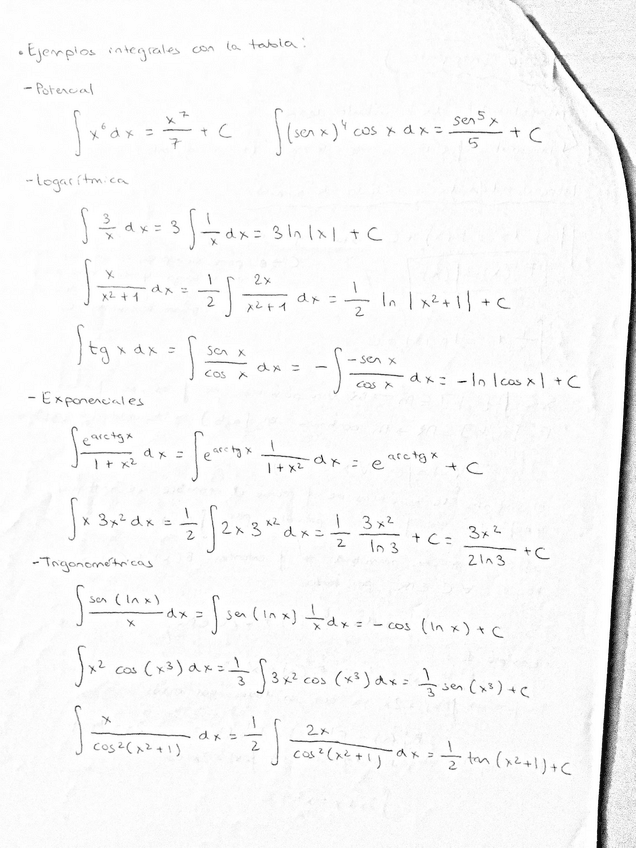 • Ejemplos integrales con la tabla:
- Potencial
∫ x⁶ dx = x⁷/7 + C    ∫ (sen x)⁴ cos x dx = sen⁵x/5 + C
- Logarítmica
∫ 3/x dx = 3 ∫ 1/x dx = 3 ln |x| + C
∫ x/(x²+1) dx = 1/2 ∫ 2x/(x²+1) dx = 1/2 ln |x²+1| + C
∫ tg x dx = ∫ sen x/cos x dx = - ∫ -sen x/cos x dx = -ln |cos x| + C
- Exponenciales
∫ e^(arctg x)/(1+x²) dx = ∫ e^(arctg x) 1/(1+x²) dx = e^(arctg x) + C
∫ x 3x² dx = 1/2 ∫ 2x 3^(x²) dx = 1/2 3x²/ln 3 + C = 3x²/(2 ln 3) + C
- Trigonométricas
∫ sen (ln x)/x dx = ∫ sen (ln x) 1/x dx = -cos (ln x) + C
∫ x² cos (x³) dx = 1/3 ∫ 3x² cos (x³) dx = 1/3 sen (x³) + C
∫ x/cos²(x²+1) dx = 1/2 ∫ 2x/cos²(x²+1) dx = 1/2 tan (x²+1) + C